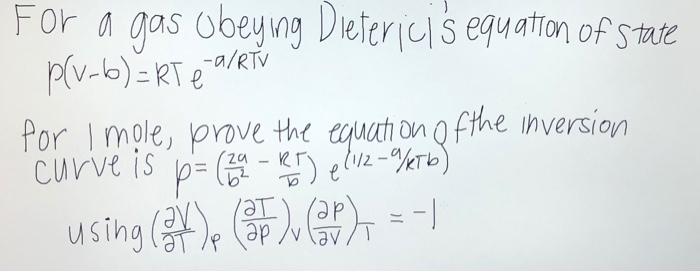 For a gas obeying Dieterici's equation of state
p(v-b) = RT e^-a/RTv
for 1 mole, prove the equation of the inversion
curve is p = (2a/b² - RT/b) e^(1/2 - a/RTb)
using (∂V/∂T)p (∂T/∂p)v (∂p/∂v)T = -1